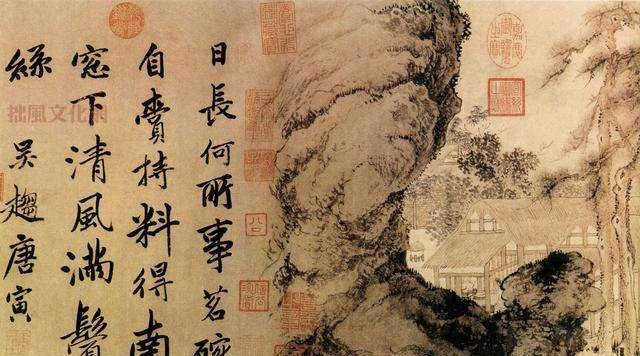 日長何所事茗碗
自賫持料得南
窓下清風滿鬢
絲 吳趨唐寅
拙風文化網